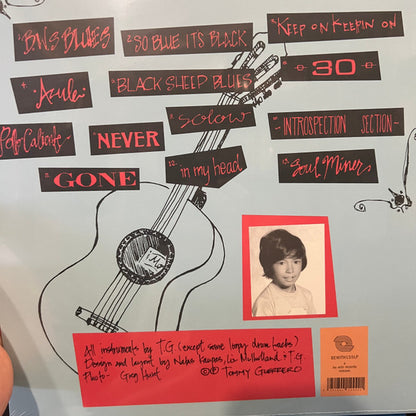 BWS BLUES
2. SO BLUE ITS BLACK
KEEP ON KEEPIN ON
4. Azule
BLACK SHEEP BLUES
30
Pollo Caliente
NEVER
SOLOW
INTROSPECTION SECTION
GONE
12. in my head
13. Soul Miner
All instruments by T.G. (except some loopy drum tracks)
Design and layout by Natas Kaupas, Liz Mulholland & T.G.
Photo - Greg Hunt
©℗ Tommy Guerrero
BEWITH155LP
be with records